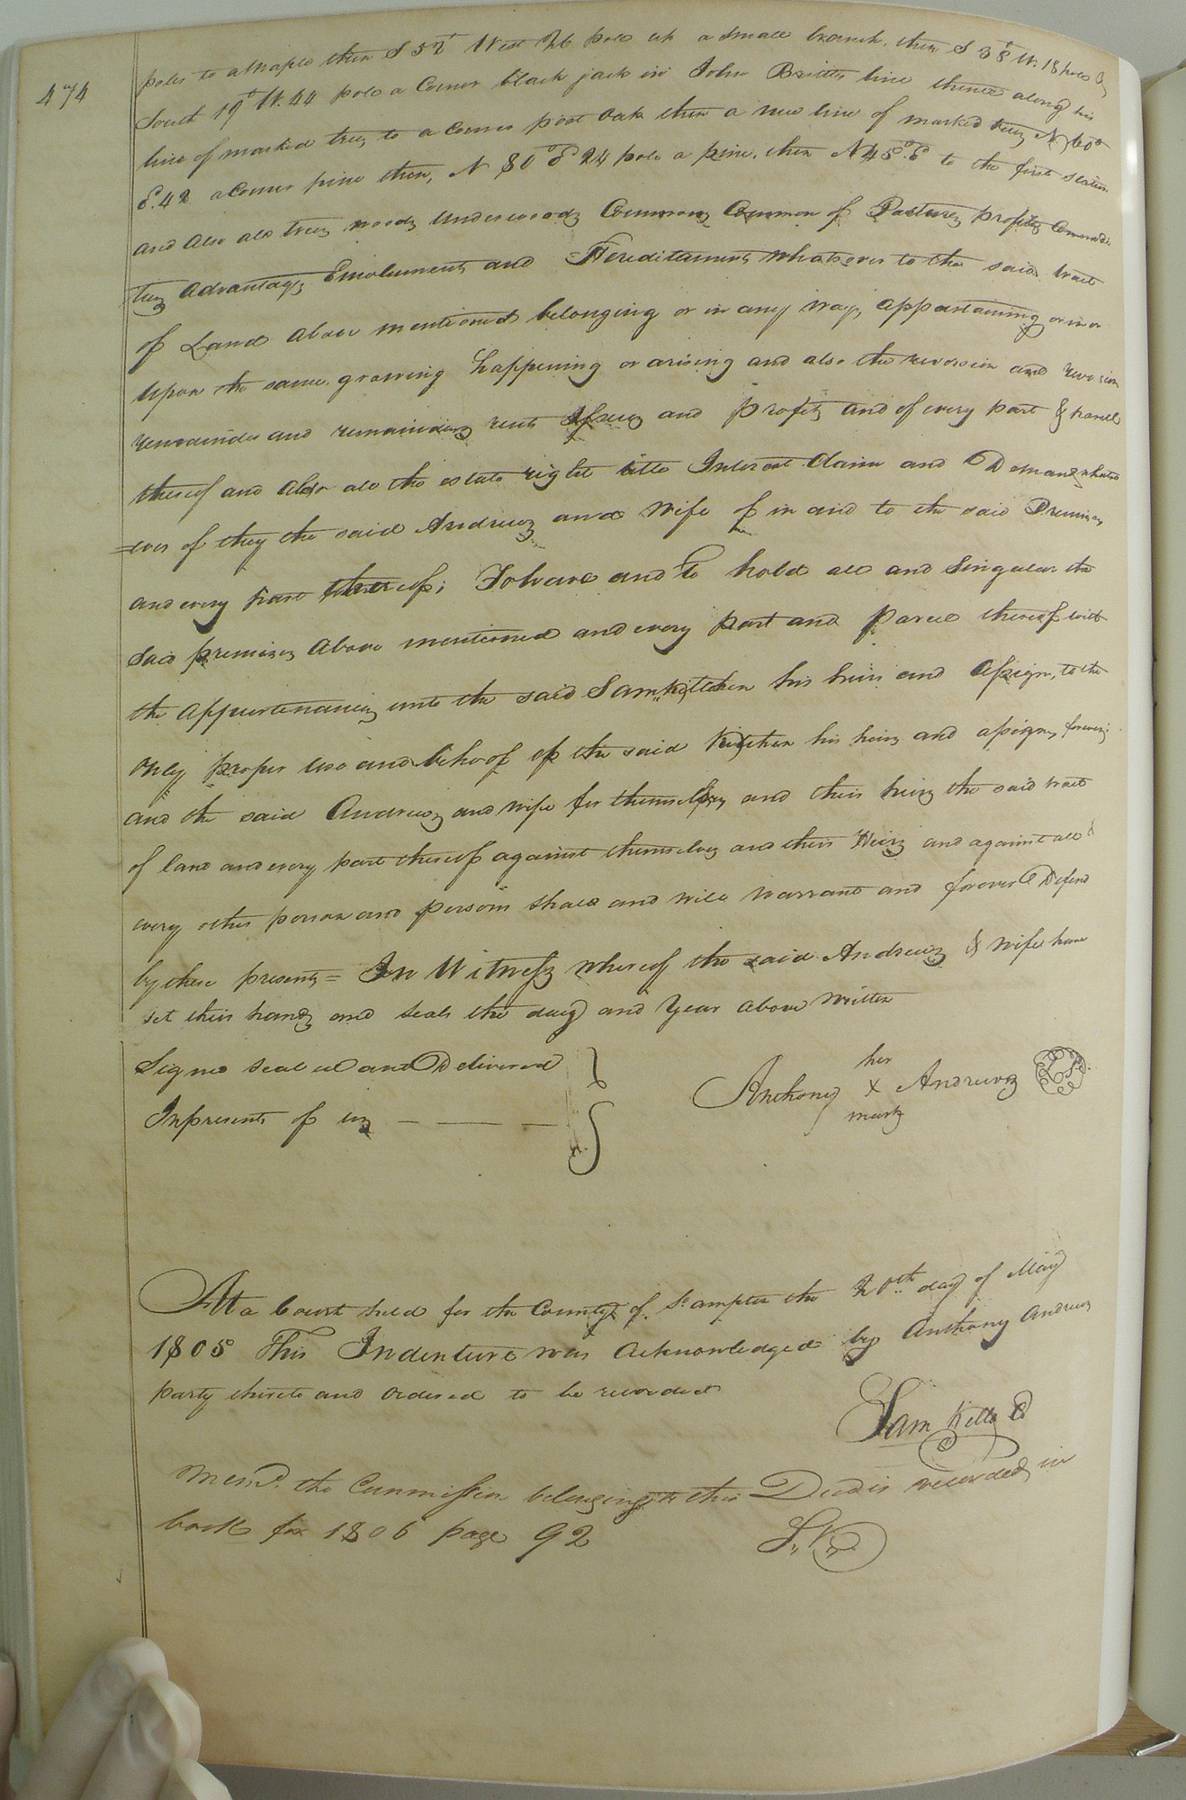 474
poles to a Maple then S 52° West 26 pole up a small branch, then S 38° W. 18 pole &
South 19° W. 44 pole a Corner black jack in John Britts line thence along his
line of marked treey to a Corner post oak then a new line of marked treey N 60°
E. 42 a Corner pine then, N 80° E 24 pole a pine, then N 45° E to the first station
and also all treey woody underwoody Commony Common of Pasturey profity Commodi
tiey advantagey Emoluments and Hereditaments whatsover to the said tract
of Land above mentioned belonging or in any ways appartaining or in or
upon the same growing happening or arising and also the reversion and reversion
remainder and remaindery rents Issuey and profity and of every part & parcell
thereof and also all the estate right title Interest Claim and Demand whatso
=ever of they the said Andrewz and wife of in and to the said Premisey
and every part thereof; To have and To hold all and Singular the
said premisey above mentioned and every part and parcel thereof with
the appurtenanciey unto the said Sam Kitchen his heirs and assigns, to the
only proper use and behoof of the said Kitchen his heirs and assigns forever;
and the said Andrewz and wife for themselvey and their heirs the said tract
of land and every part thereof against themselvey and their Heirs and against all &
every other person and persons shall and will warrant and forever Defend
by these presents = In Witness whereof the said Andrewz & wife have
set their hands and seals the day and year above written
Signed sealed and Delivered
In presents of us — — —
her
Anthony X Andrewz
mark
At a Court held for the County of Sampton the 20th day of May
1805 This Indenture was acknowledged by Anthony Andrewz
party thereto and ordered to be recorded
Sam Kello C
Memo. the Commission belonging to this Deed is recorded in
book for 1806 page 92
S. K.